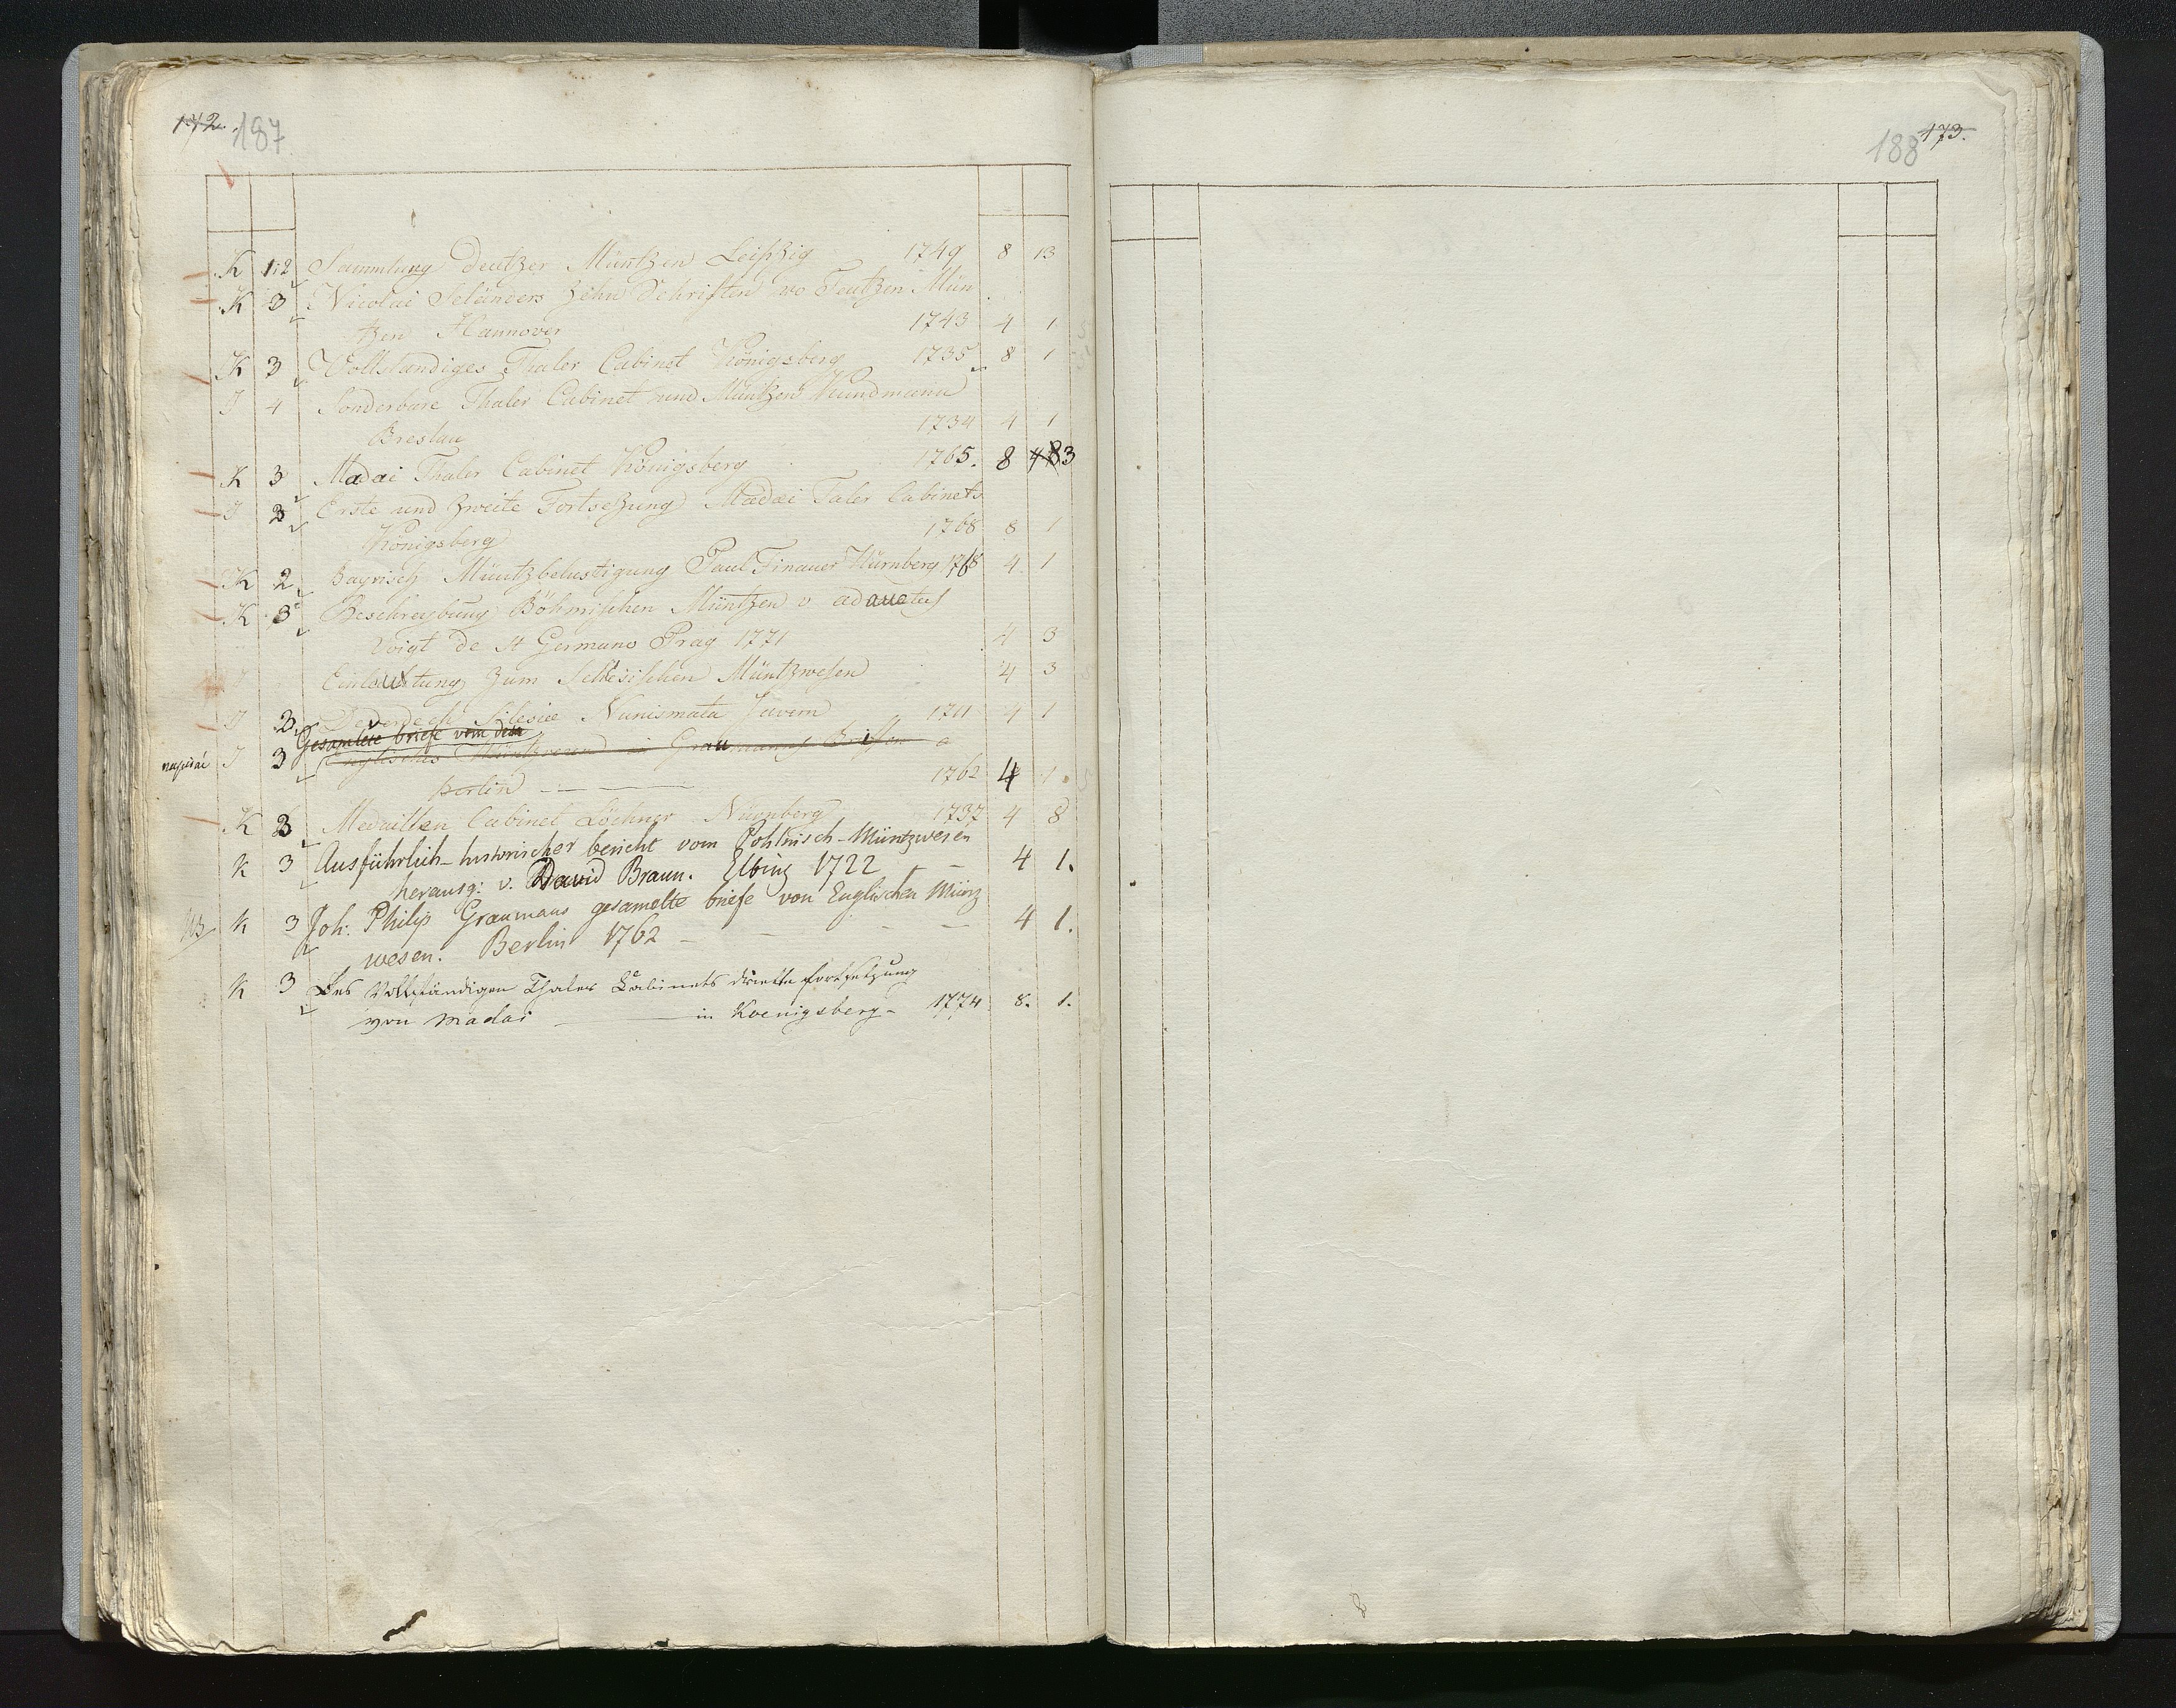 172. 187
K 1:2 Sammlung Deutzer Müntzen Leipzig 1749 8 13
K 3 Nicolai Seländers Zehn Schriften vo Teutzen Mün
tzen Hannover 1743 4 1
K 3 Vollstandiges Thaler Cabinet Königsberg 1735 8 1
J 4 Sonderbare Thaler Cabinet und Müntzen Kundmann
Breslau 1734 4 1
K 3 Madai Thaler Cabinet Königsberg 1765. 8 3
J 3 Erste und zweite Fortsetzung Madai Taler Cabinets
Königsberg 1768 8 1
K 2 Bayrisch Müntzbelustigung Paul Finauer Nürnberg 1768 4 1
K 3 Beschreybung Böhmischen Müntzen v adauctus
Voigt de St Germano Prag 1771 4 3
J zum Schlesischen Müntzwesen 4 3
J 3 Dewerdeck Silesiæ Numismata Javern 1711 4 1
Gesamlete briefe vom den
J 3 Englisches Müntzwesen in Graumans Briefen a
Berlin 1762 4 1.
K 3 Medaillen Cabinet Löchner Nürnberg 1737 4 8
K 3 Ausführlich-historischer bericht vom Pohlnisch-Müntzwesen
herausg: v. David Braun. Elbing 1722 4 1.
K 3 Joh: Philip Graumans gesamelte briefe von Englischen Münz
wesen. Berlin 1762 4 1.
K 3 Des Vollständigen Thaler Cabinets driette fortsetzung
von Madai in Koenigsberg 1774 8. 1.
188 173.